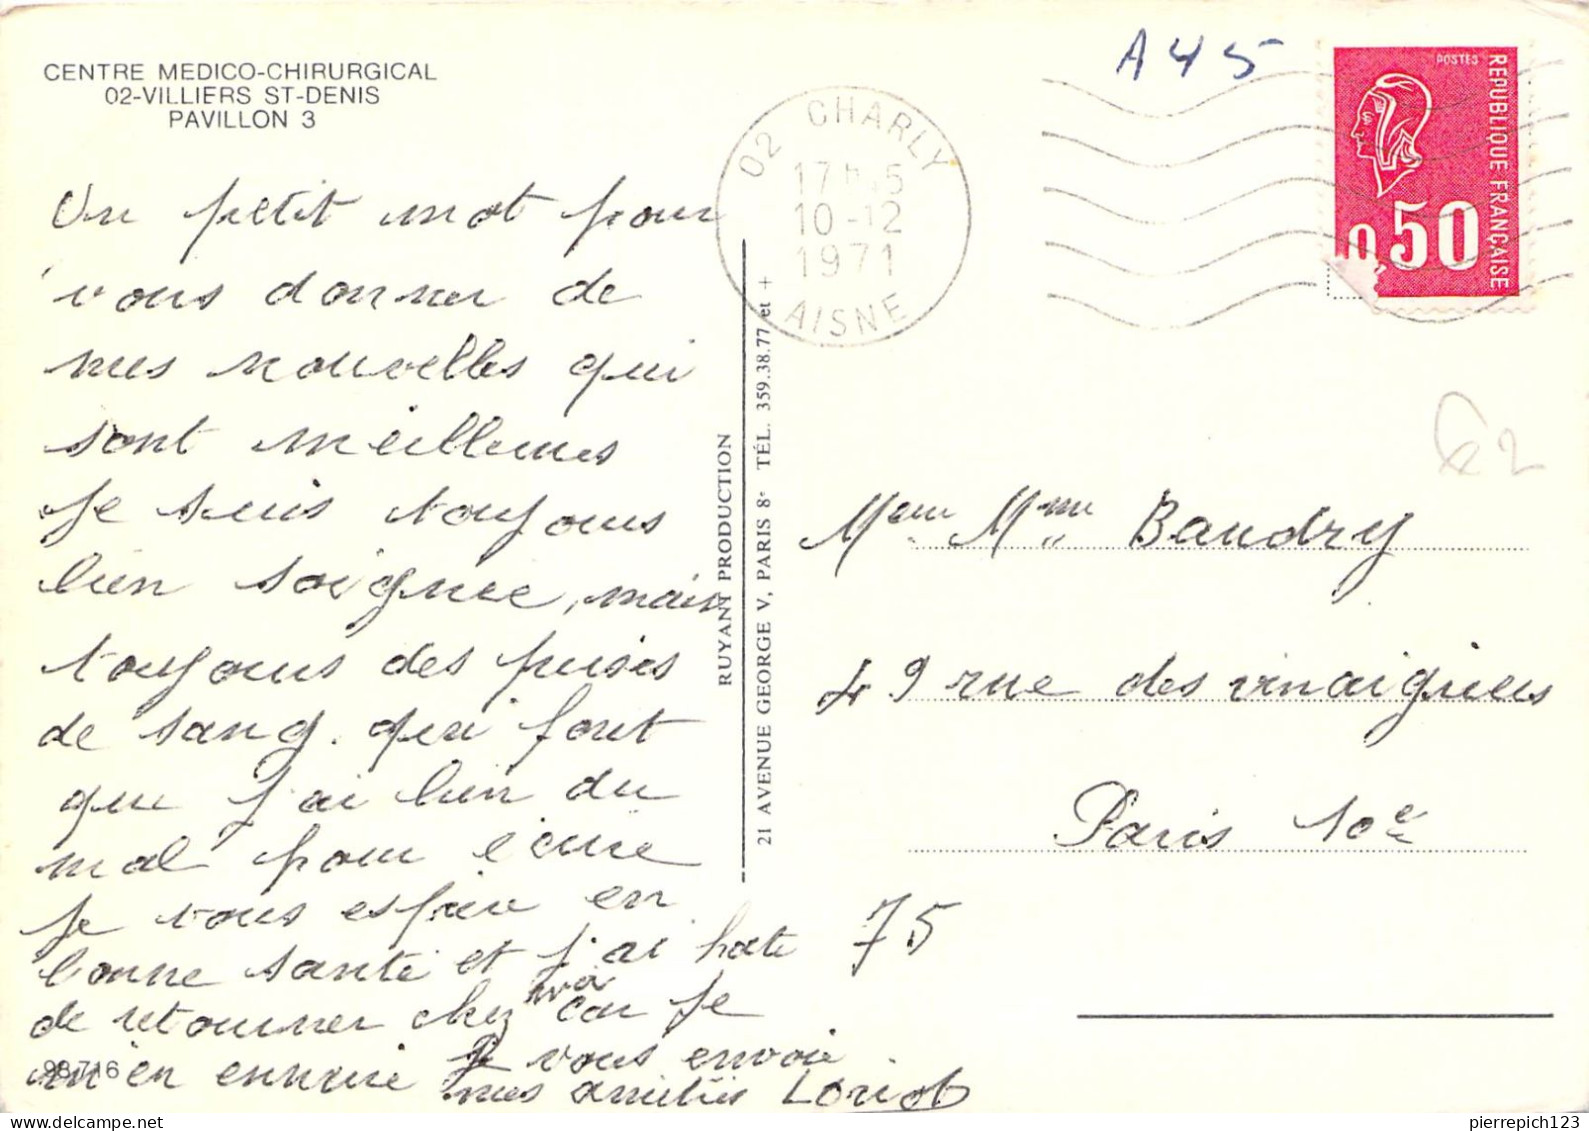 CENTRE MEDICO-CHIRURGICAL
02-VILLIERS ST-DENIS
PAVILLON 3
Un petit mot pour
vous donner de
mes nouvelles qui
sont meilleures
Je suis toujours
bien soignee, mais
toujours des prises
de sang. qui font
que j'ai bien du
mal pour écrire
Je vous espère en
bonne santé et j'ai hate
de retourner chez moi car je
m'en ennuie Je vous envoie
mes amitiés Loriot
98716
RUYANT PRODUCTION
21 AVENUE GEORGE V, PARIS 8e TÉL. 359.38.77 et +
02 CHARLY
17h 5
10-12
1971
AISNE
A45
POSTES
REPUBLIQUE FRANÇAISE
0,50
Mme Baudry
49 rue des vinaigriers
Paris 10e
75
pierrepich123